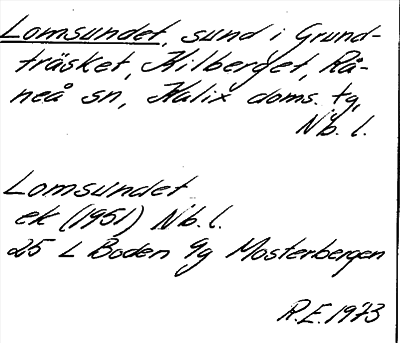 Lomsundet, sund i Grund-
träsket, Kilberget, Rå-
neå sn, Kalix doms. tg,
Nb. l.
Lomsundet
ek (1951) Nb. l.
25 L Boden 9g Mosterbergen
R.E. 1973